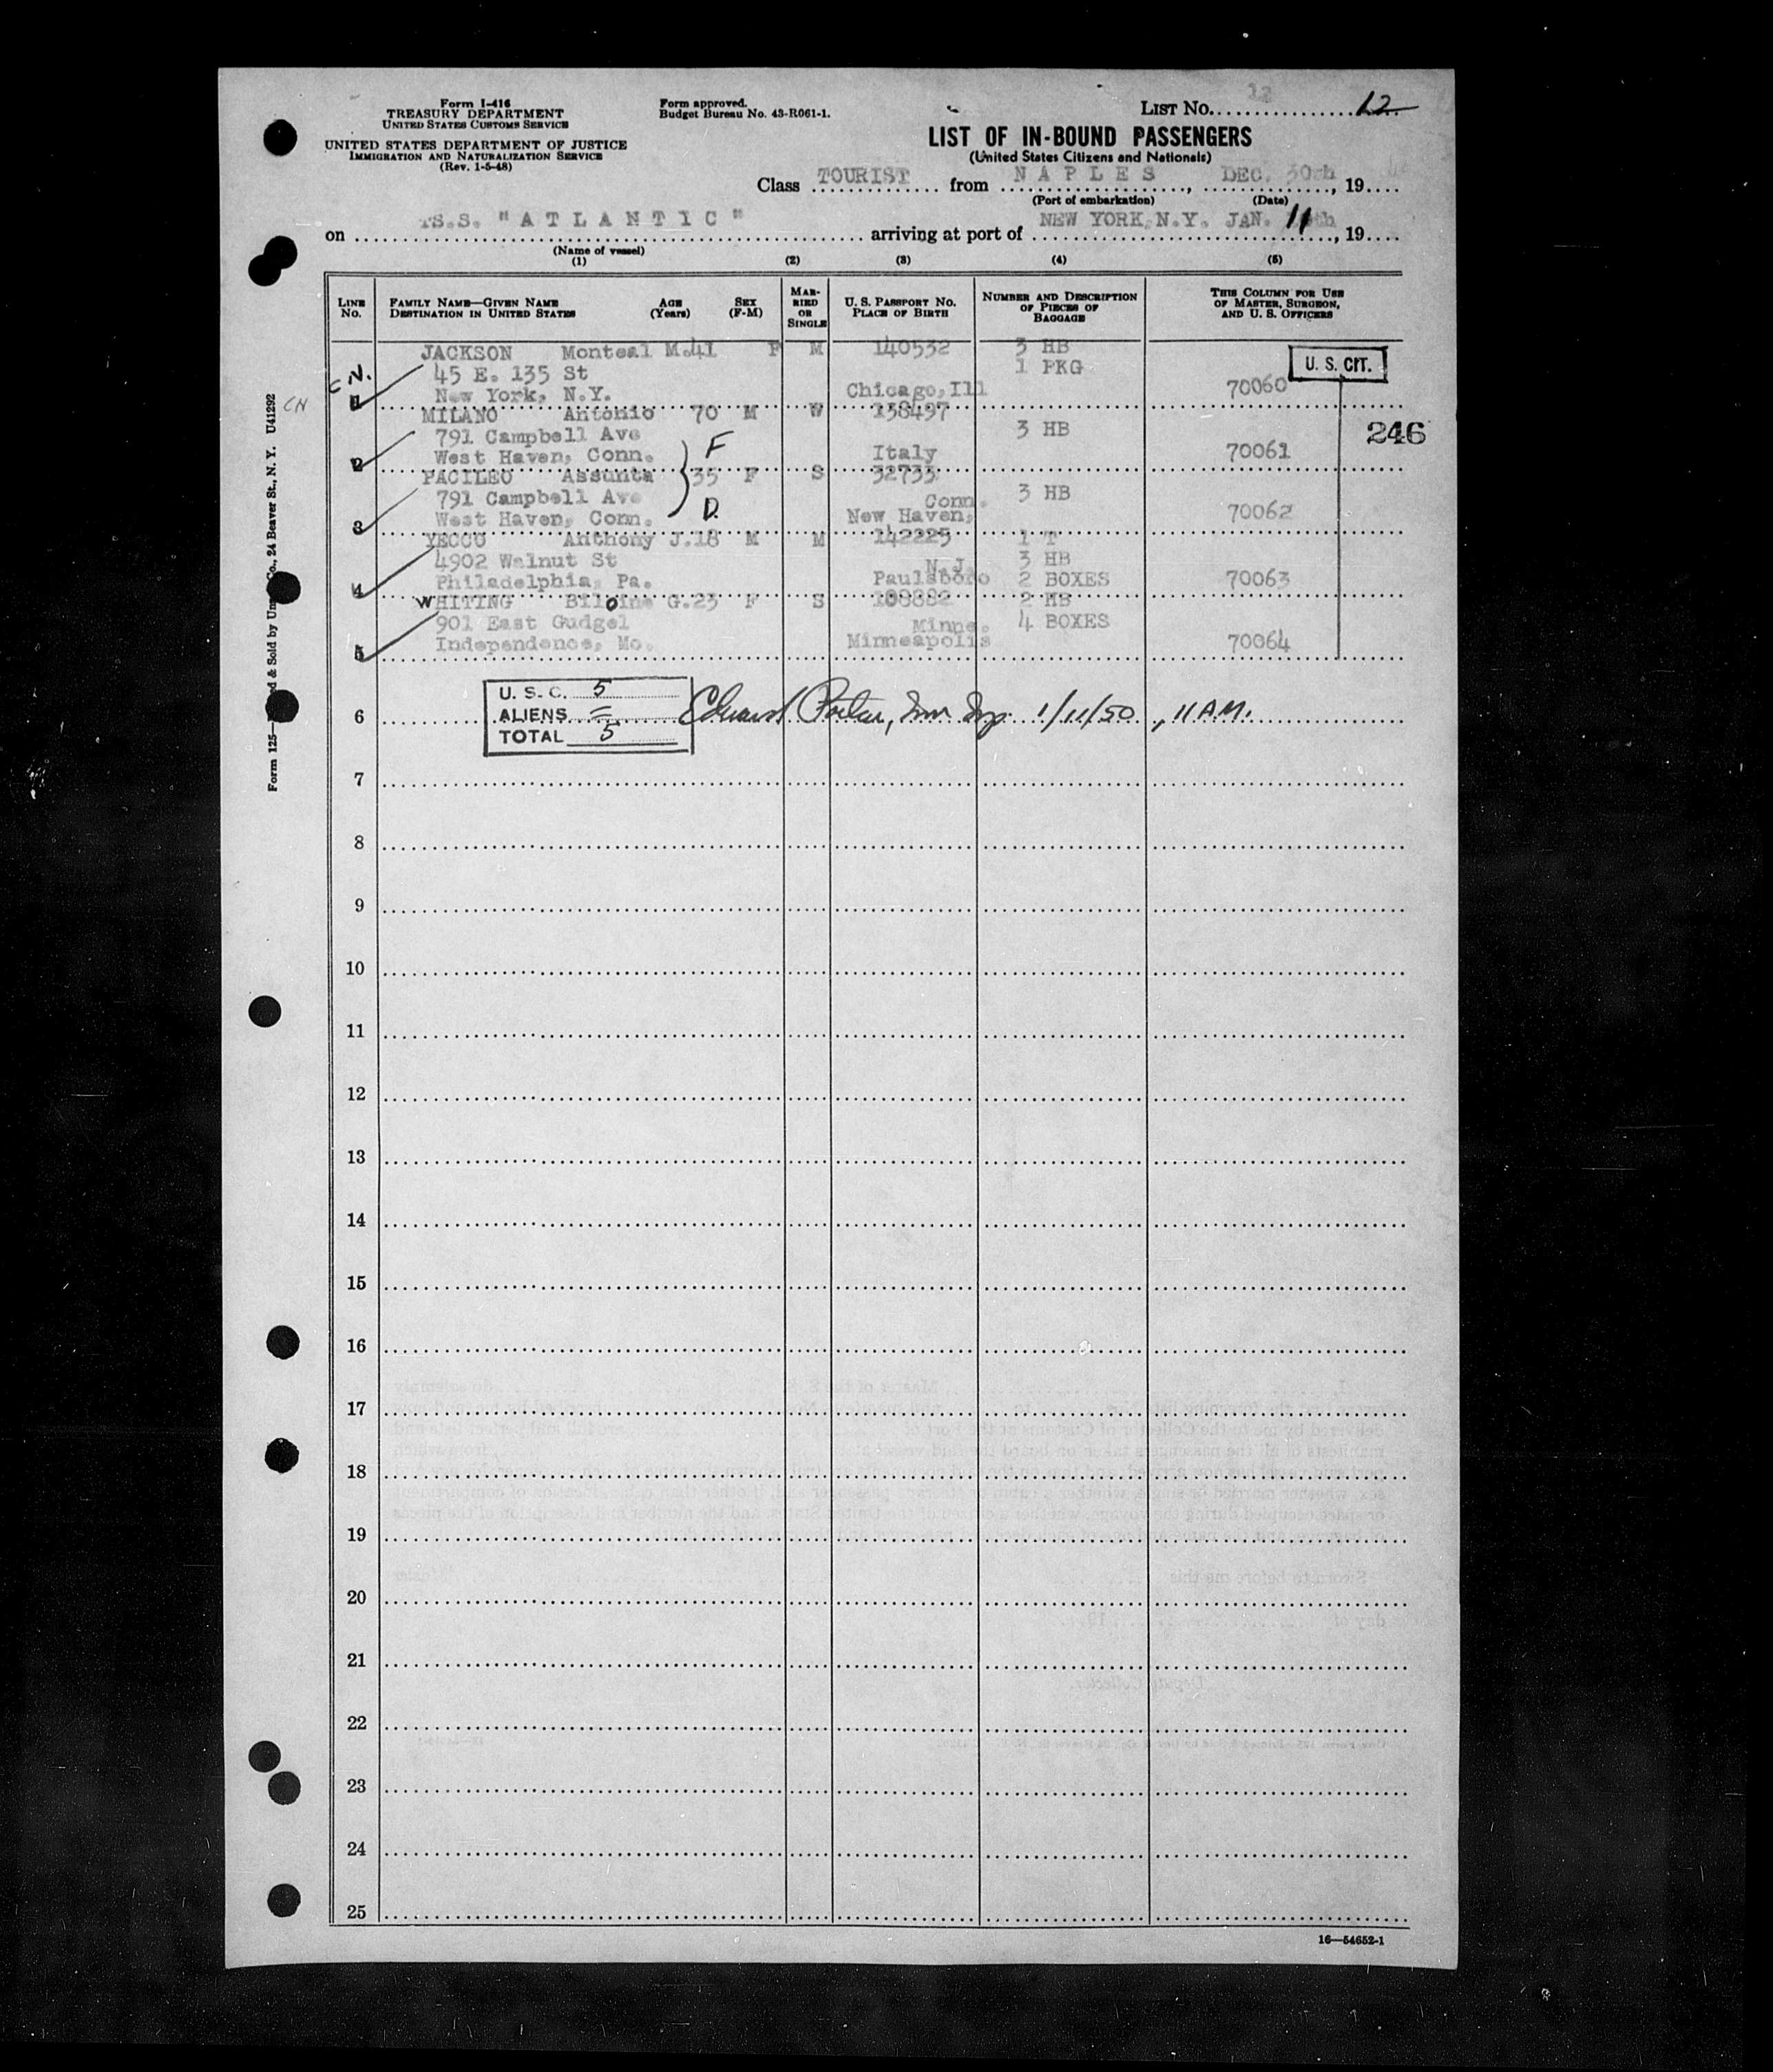 Form I-416
TREASURY DEPARTMENT
UNITED STATES CUSTOMS SERVICE
UNITED STATES DEPARTMENT OF JUSTICE
IMMIGRATION AND NATURALIZATION SERVICE
(Rev. 1-5-48)
Form approved.
Budget Bureau No. 43-R061-1.
LIST NO. 12 12
LIST OF IN-BOUND PASSENGERS
(United States Citizens and Nationals)
Class TOURIST from NAPLES, DEC. 30th, 19
(Port of embarkation) (Date)
on TS.S. "ATLANTIC" arriving at port of NEW YORK, N.Y. JAN. 11th, 19
(Name of vessel)
(1) (2) (3) (4) (5)
LINE NO. FAMILY NAME—GIVEN NAME DESTINATION IN UNITED STATES AGE (Years) SEX (F-M) MARRIED OR SINGLE U. S. PASSPORT NO. PLACE OF BIRTH NUMBER AND DESCRIPTION OF PIECES OF BAGGAGE THIS COLUMN FOR USE OF MASTER, SURGEON, AND U. S. OFFICERS
JACKSON Monteal M. 41 F M 140532 3 HB
C N. 45 E. 135 St 1 PKG U. S. CIT.
1 New York, N.Y. Chicago, Ill 70060
CN
MILANO Antonio 70 M W 138497
791 Campbell Ave F 3 HB 246
2 West Haven, Conn. Italy 70061
PACILEO Assunta 35 F S 32733
791 Campbell Ave Conn. 3 HB
3 West Haven, Conn. D. New Haven, 70062
YECCO Anthony J. 18 M M 142225 1 T
4902 Walnut St N.J. 3 HB
4 Philadelphia, Pa. Paulsboro 2 BOXES 70063
WHITING G. 23 F S 108882 2 HB
901 East Gudgel Minne. 4 BOXES
5 Independence, Mo. Minneapolis 70064
U. S. C. 5
6 ALIENS = Edward Porter, Imm Insp. 1/11/50, 11 A.M.
TOTAL 5
7
8
9
10
11
12
13
14
15
16
17
18
19
20
21
22
23
24
25
16—54652-1
Form 125— & Sold by Co., 24 Beaver St., N. Y. U41292